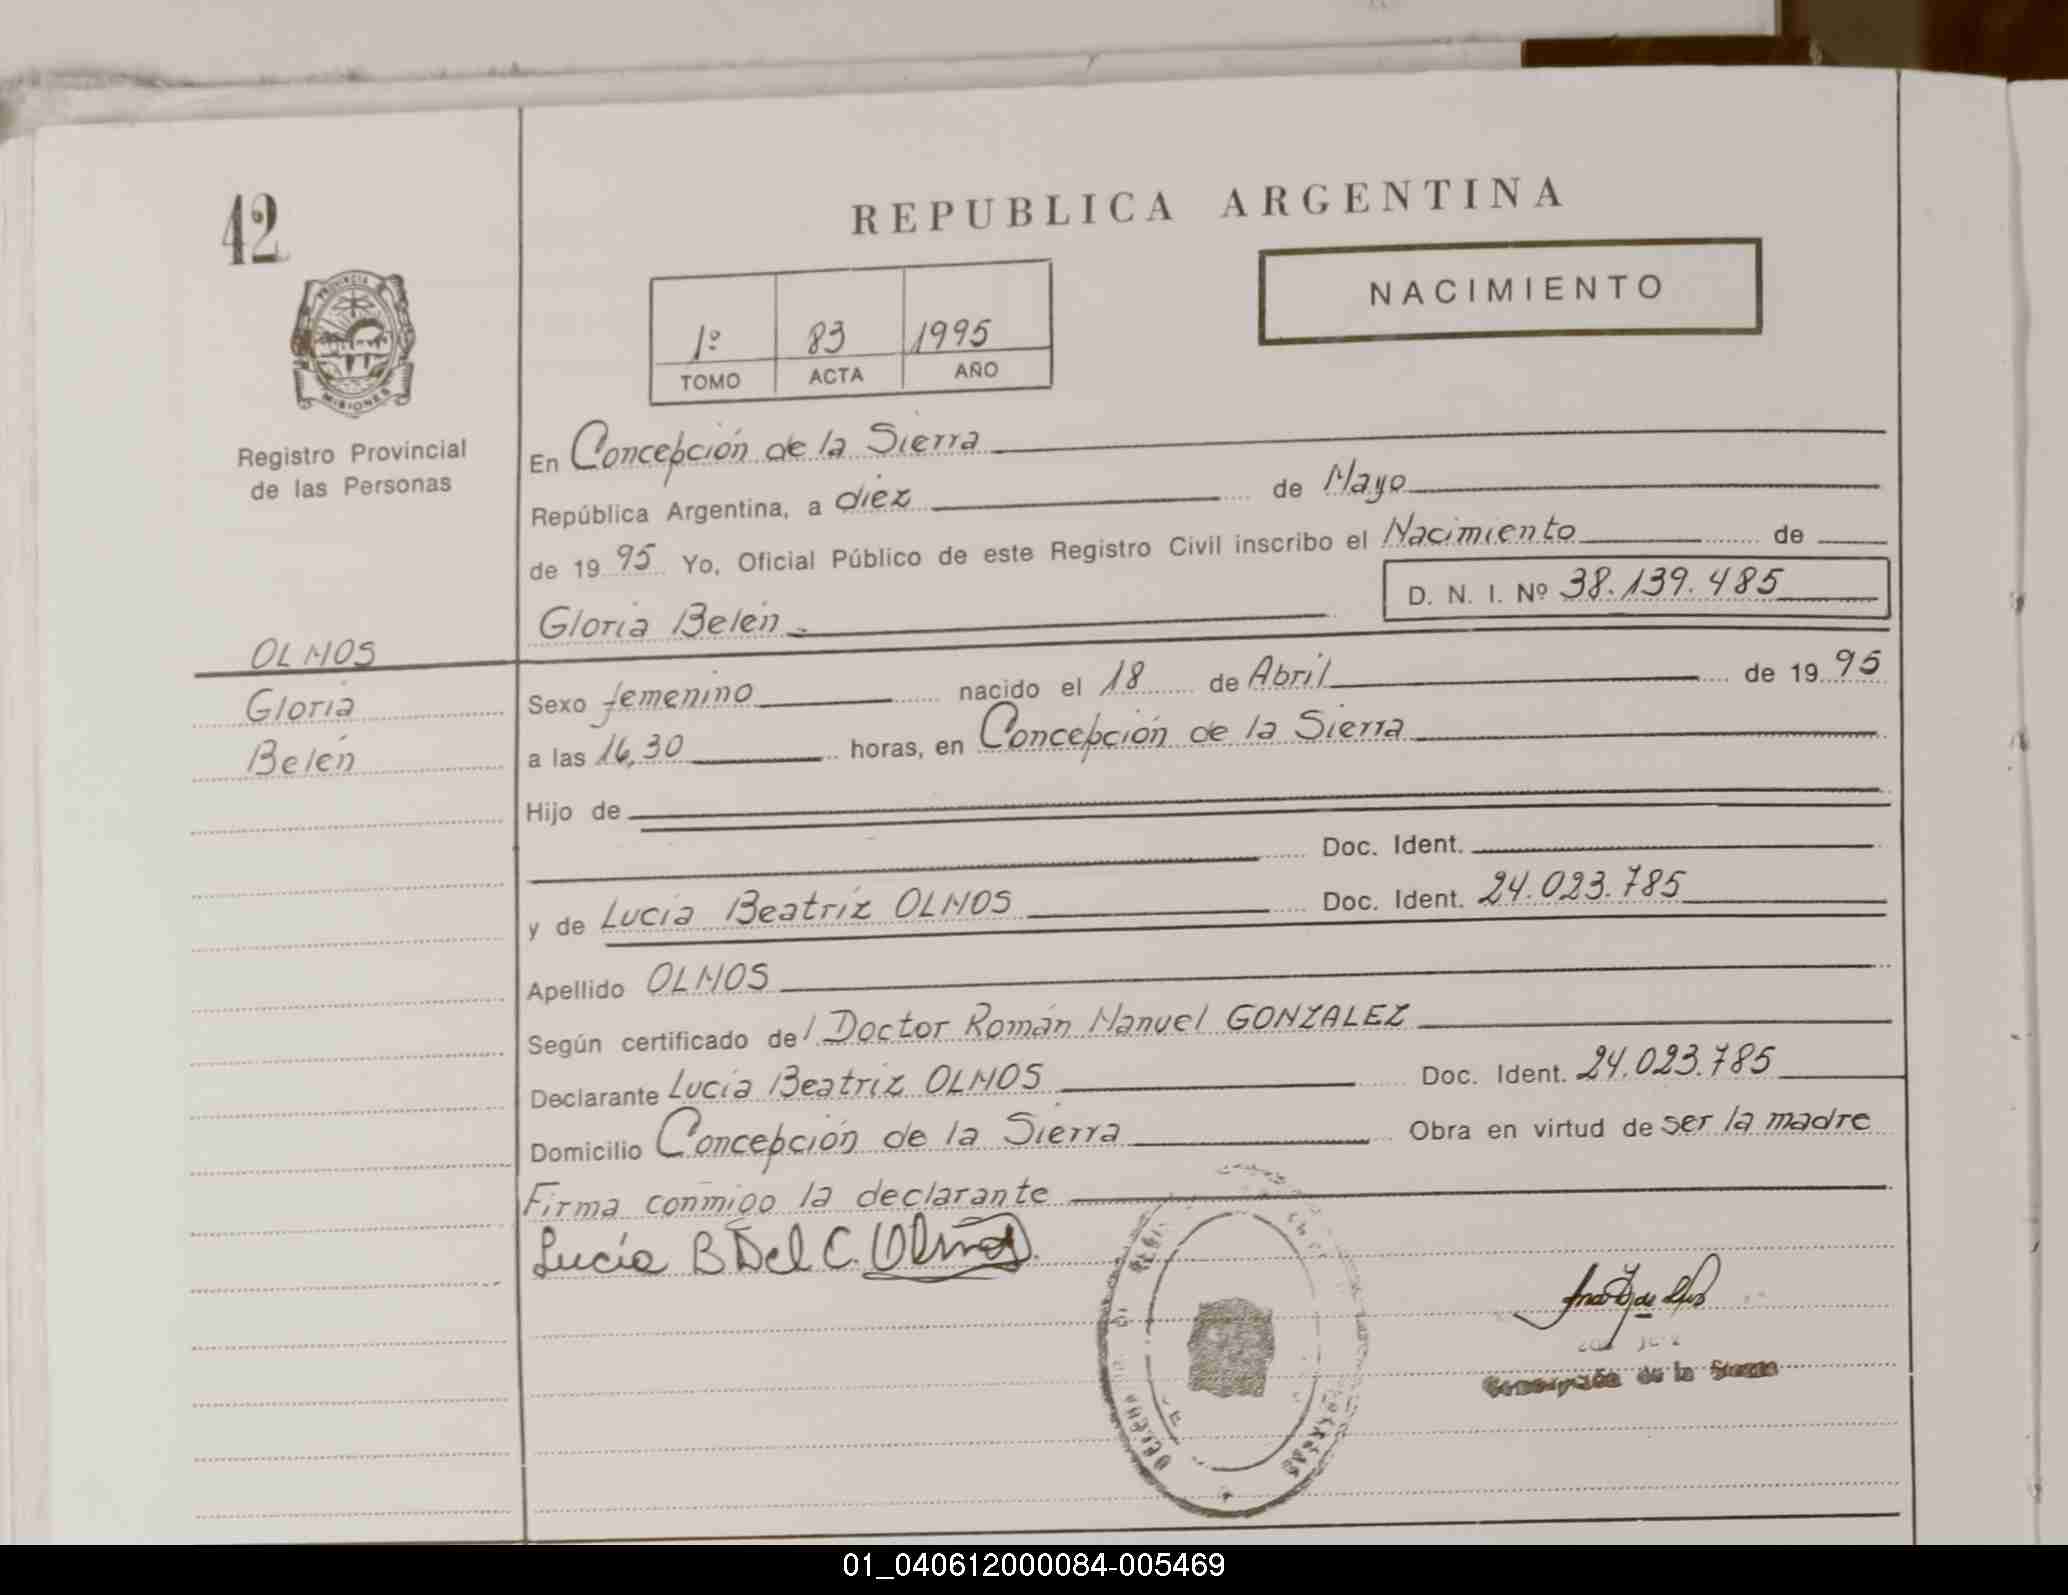 42
REPUBLICA ARGENTINA
NACIMIENTO
1º 83 1995
TOMO ACTA AÑO
PROVINCIA
MISIONES
Registro Provincial
de las Personas
En Concepción de la Sierra
República Argentina, a diez de Mayo
de 1995 Yo, Oficial Público de este Registro Civil inscribo el Nacimiento de
D. N. I. Nº 38.139.485
Gloria Belén
OLMOS
Gloria
Belén
Sexo femenino nacido el 18 de Abril de 1995
a las 16,30 horas, en Concepción de la Sierra
Hijo de
Doc. Ident.
y de Lucía Beatríz OLMOS Doc. Ident. 24.023.785
Apellido OLMOS
Según certificado del Doctor Román Manuel GONZALEZ
Declarante Lucía Beatríz OLMOS Doc. Ident. 24.023.785
Domicilio Concepción de la Sierra Obra en virtud de ser la madre
Firma conmigo la declarante
Lucía B Del C. Olmos
Concepción de la Sierra
01_040612000084-005469